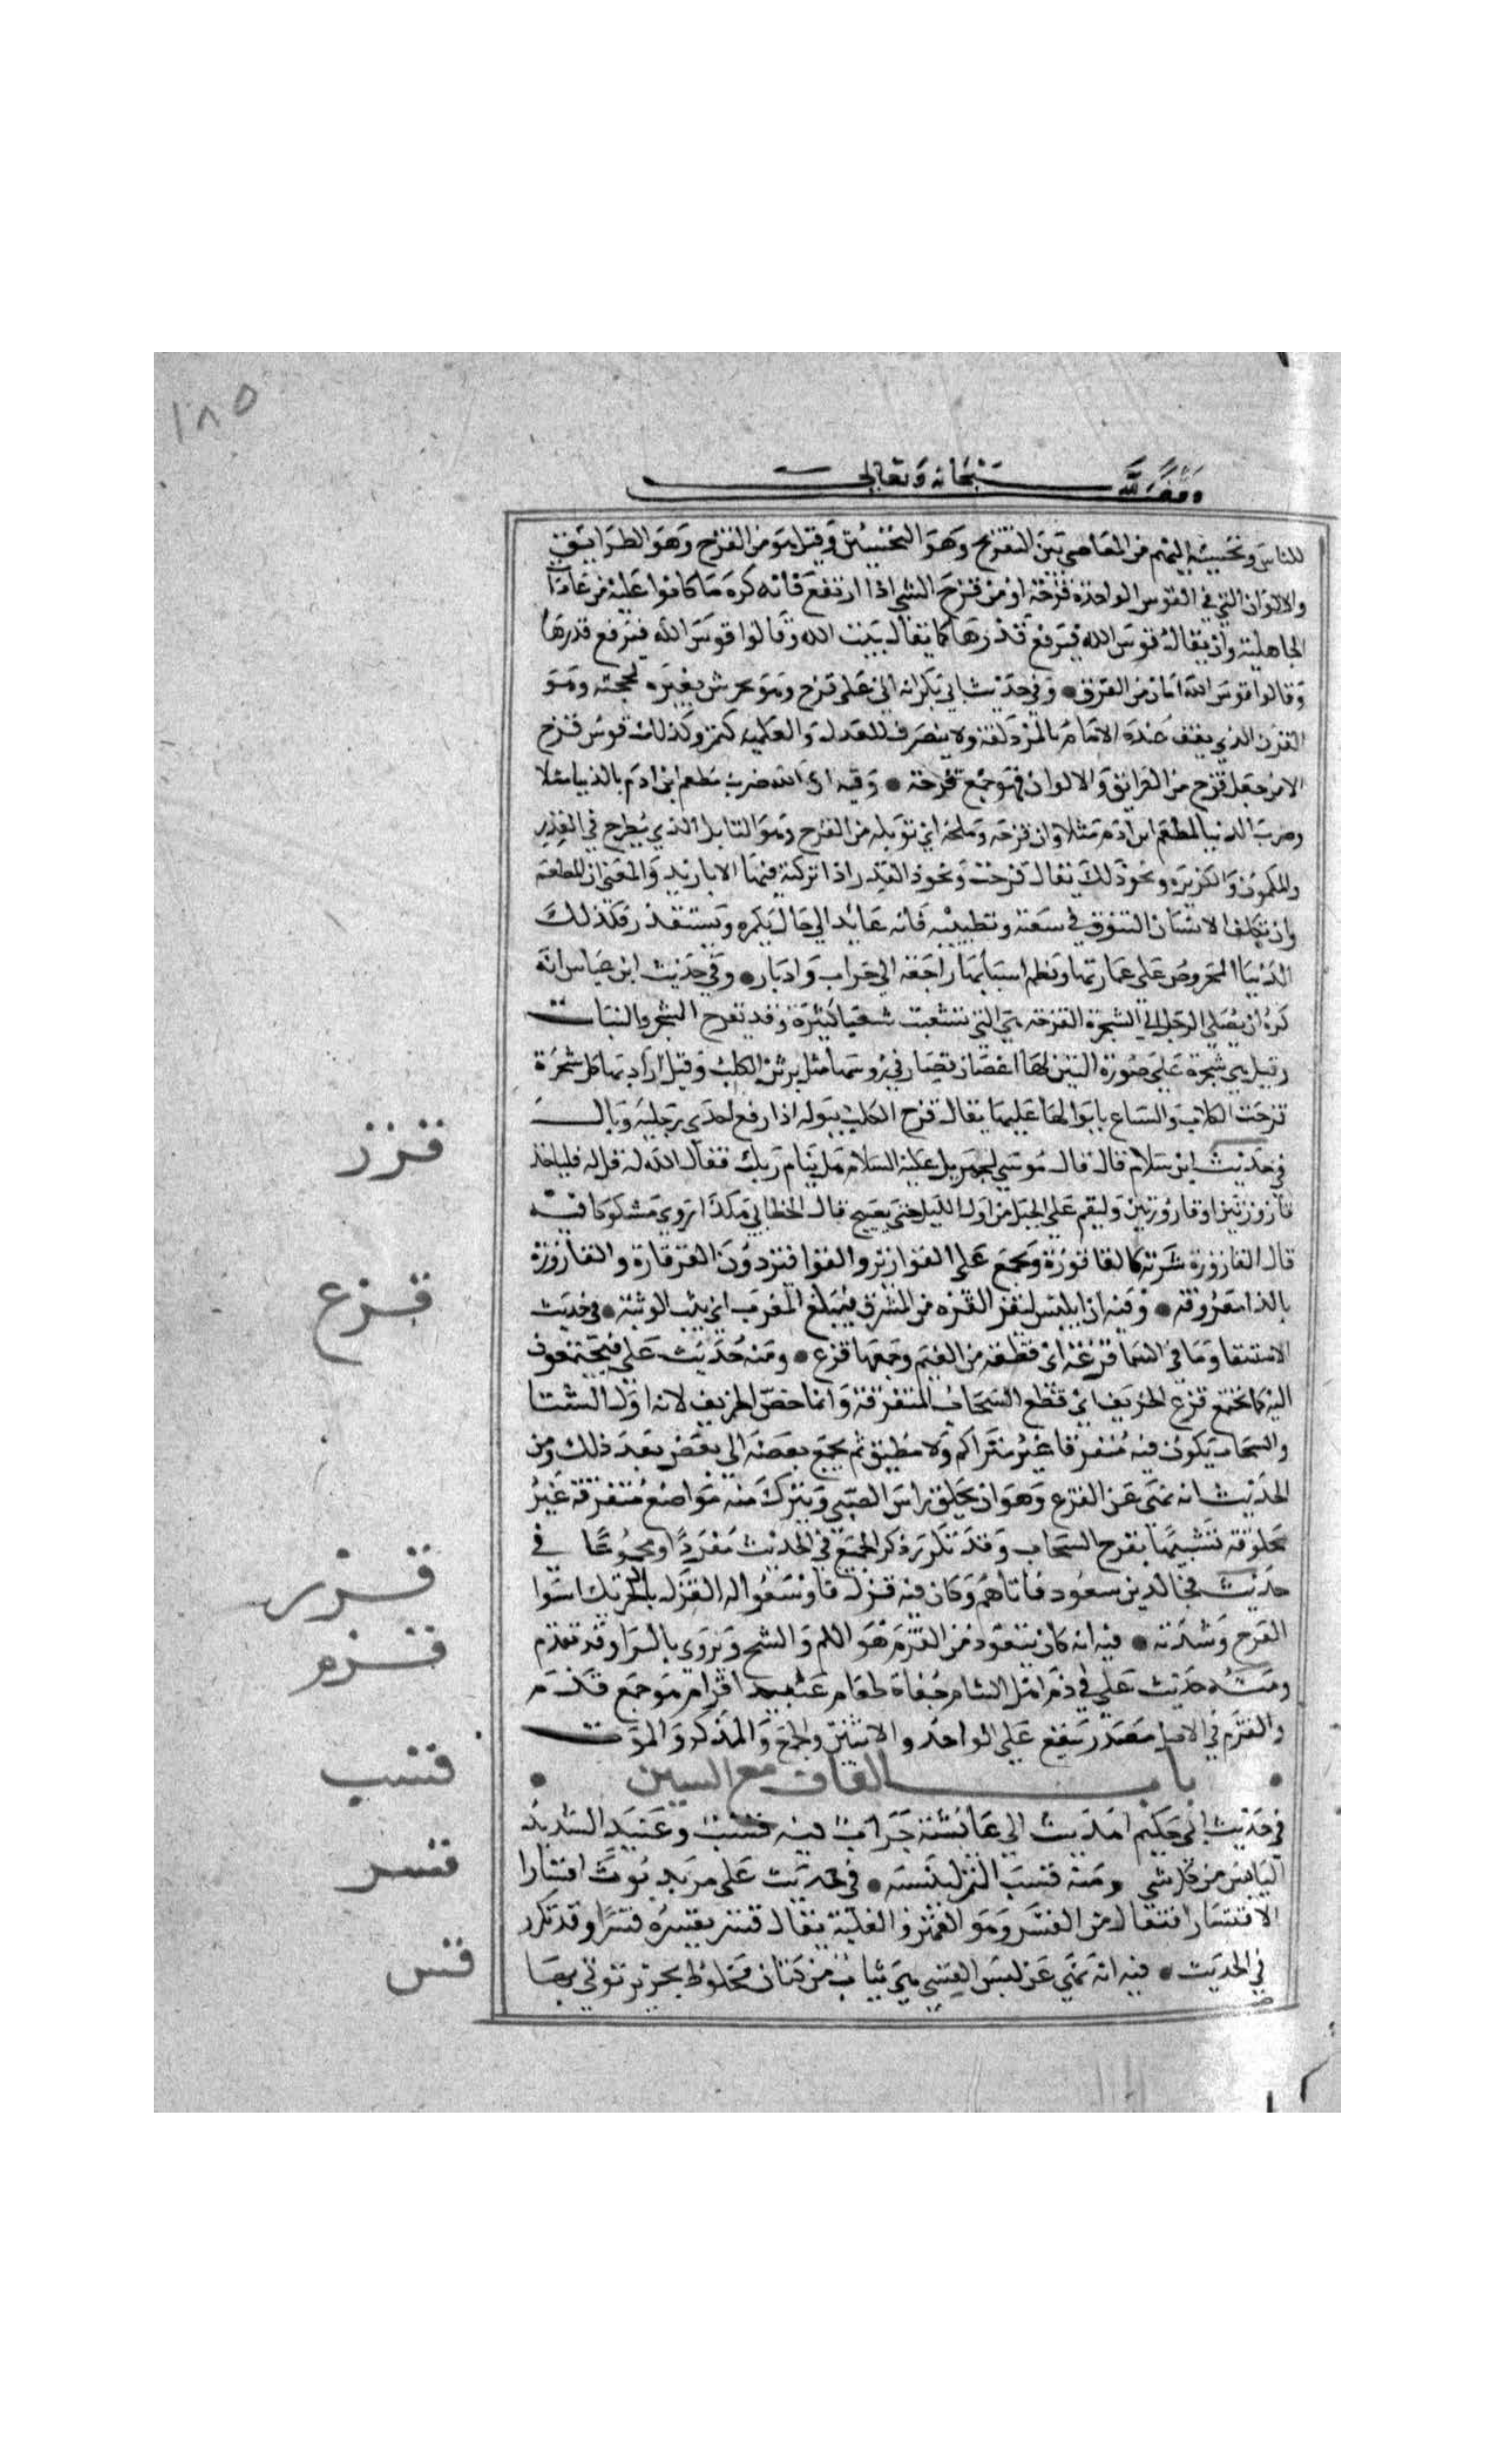 ١٨٥
وقف لله سبحانه وتعالى
للناس وتحسينه اليهم من المعاصي من التقزيح وهو التحسين وقيل هو من القزح وهو الطرايق
والالوان التي في القوس الواحدة قزحة او من قزح الشي اذا ارتفع فانه كره ما كانوا عليه من عادات
الجاهلية وان يقال قوس الله فيرفع قدرها كما يقال بيت الله وقالوا قوس الله فيرفع قدرها
وقالوا قوس الله امان من الغرق • وفي حديث ابي بكر انه اتى على قزح وهو يخرش بعيره بمحجنه وهو
القرن الذي يقف عنده الامام بالمزدلفة ولا ينصرف للعدل والعلمية كعمر وكذلك قوس قزح
الا من جعل قزح من الطرايق والالوان فهو جمع قزحة • وفيه ان الله ضرب مطعم ابن ادم بالدنيا مثلا
وضرب الدنيا لمطعم ابن ادم مثلا وان قزحه وملحه اي توبله من القزح وهو التابل الذي يطرح في القدر
والكمون والكزبره ونحو ذلك يقال قزحت القدر اذا تركت فيها الابازير والمعنى ان المطعم
وان تكلف الانسان التنوق في صنعته وتطييبه فانه عايد الي حال يكره ويستقذر فكذلك
الدنيا المحروص على عمارتها ونظم اسبابها راجعة الي خراب وادبار • وفي حديث ابن عباس انه
كره ان يصلي الرجل الي الشجرة القزحة هي التي تشعبت شعبا كثيرة وقد تقزح الشجر والنبات
وقيل هي شجرة على صورة التين لها اغصان قصار في روسها مثل برثن الكلب وقيل اراد بها كل شجرة
قزحت الكلاب والسباع بابوالها عليها يقال قزح الكلب ببوله اذا رفع احدى رجليه وبال
قزز
في حديث ابن سلام قال قال موسي لجبريل عليه السلام هل ينام ربك فقال الله له قل له فلياخذ
قازوزتين او قارورتين وليقم على الجبل من اول الليل حتى يصبح قال الخطابي هكذا يروى مشكوكا فيه
قال القازوزة مشربة كالقاقوزة وتجمع على القوازيز والقواقيز دون القرقارة والقارورة
بالرا معروفة • وفيه ان ابليس ليقز القزه من المشرق فيبلغ المغرب اي يثب الوثبة • في حديث
قزع
الاستسقا وما في السما قزعة اي قطعة من الغيم وجمعها قزع • ومنه حديث على فيجتمعون
اليه كما يجتمع قزع الخريف اي قطع السحاب المتفرقة وانما خص الخريف لانه اول الشتا
والسحاب يكون فيه متفرقا غير متراكم ولا مطبق ثم يجمع بعضه الي بعض بعد ذلك ومن
الحديث انه نهى عن القزع وهو ان يحلق راس الصبي ويترك منه مواضع متفرقة غير
محلوقة تشبيها بقزع السحاب وقد تكرر ذكر الجميع في الحديث مفردا ومجموعا في
حديث مجالد بن مسعود فاتاهم وكان فيه قزل فاوسعوا له القزل بالتحريك اسوا
العرج وشدته • فيه انه كان يتعوذ من القزم هو اللوم والشح ويروى بالرا وقد تقدم
قزم
ومنه حديث علي في ذم اهل الشام جفاة طغام عبيد اقزام هو جمع قزم
والقزم في الاصل مصدر يقع على الواحد والاثنين والجمع والمذكر والمونث
• باب القاف مع السين •
قسب
في حديث ابن عكيم اهديت الي عائشة جرابا فيه قسب وعنبر الشديد
اليابس من كل شي ومنه قسب التمر ليبسه • في حديث على مربوبون اقتسارا
قسر
الاقتسار افتعال من القسر وهو القهر والغلبة يقال قسره يقسره قسرا وقد تكرر
في الحديث • فيه انه نهى عن لبس القسي هي ثياب من كتان مخلوط بحرير توتي بها
قس